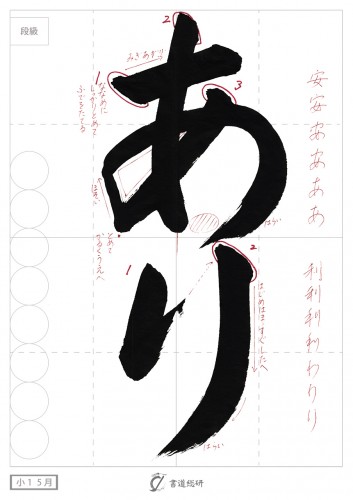 段級
あり
2
みぎあがり
1
ななめに
しっかりとめて
ふでをたてる
3
はらい
とめて
かるくうえへ
1
2
はじめはまっすぐしたへ
はらい
安安安安ああ
利利利利わりり
小1 5月
書道総研